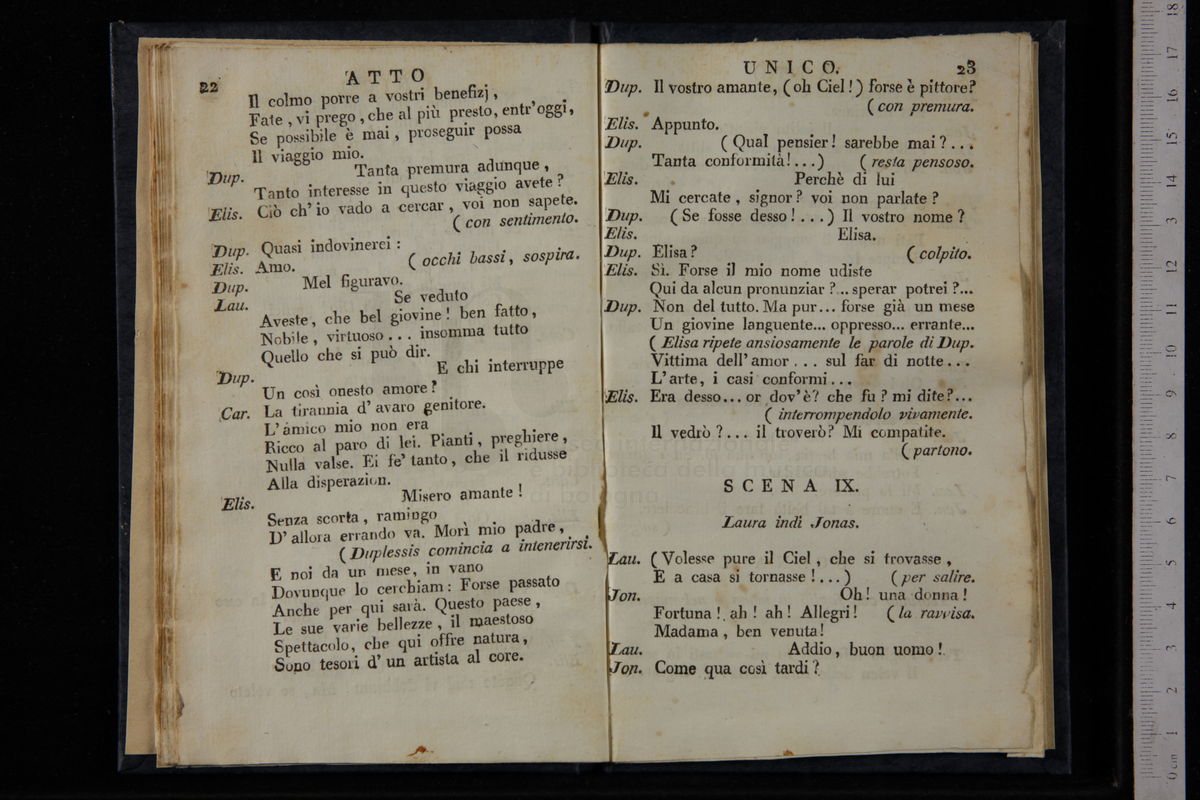 22
ATTO
Il colmo porre a vostri benefizj,
Fate, vi prego, che al più presto, entr'oggi,
Se possibile è mai, proseguir possa
Il viaggio mio.
Dup. Tanta premura adunque,
Tanto interesse in questo viaggio avete?
Elis. Ciò ch'io vado a cercar, voi non sapete.
(con sentimento.
Dup. Quasi indovinerei:
Elis. Amo. (occhi bassi, sospira.
Dup. Mel figuravo.
Lau. Se veduto
Aveste, che bel giovine! ben fatto,
Nobile, virtuoso... insomma tutto
Quello che si può dir.
Dup. E chi interruppe
Un così onesto amore?
Car. La tirannia d'avaro genitore.
L'amico mio non era
Ricco al paro di lei. Pianti, preghiere,
Nulla valse. Ei fe' tanto, che il ridusse
Alla disperazion.
Elis. Misero amante!
Senza scorta, ramingo
D'allora errando va. Morì mio padre,
(Duplessis comincia a intenerirsi.
E noi da un mese, in vano
Dovunque lo cerchiam: Forse passato
Anche per qui sarà. Questo paese,
Le sue varie bellezze, il maestoso
Spettacolo, che qui offre natura,
Sono tesori d'un artista al core.
UNICO.
23
Dup. Il vostro amante, (oh Ciel!) forse è pittore?
(con premura.
Elis. Appunto.
Dup. (Qual pensier! sarebbe mai?...
Tanta conformità!...) (resta pensoso.
Elis. Perchè di lui
Mi cercate, signor? voi non parlate?
Dup. (Se fosse desso!...) Il vostro nome?
Elis. Elisa.
Dup. Elisa? (colpito.
Elis. Sì. Forse il mio nome udiste
Qui da alcun pronunziar?... sperar potrei?...
Dup. Non del tutto. Ma pur... forse già un mese
Un giovine languente... oppresso... errante...
(Elisa ripete ansiosamente le parole di Dup.
Vittima dell'amor... sul far di notte...
L'arte, i casi conformi...
Elis. Era desso... or dov'è? che fu? mi dite?...
(interrompendolo vivamente.
Il vedrò?... il troverò? Mi compatite.
(partono.
SCENA IX.
Laura indi Jonas.
Lau. (Volesse pure il Ciel, che si trovasse,
E a casa si tornasse!...) (per salire.
Jon. Oh! una donna!
Fortuna! ah! ah! Allegri! (la ravvisa.
Madama, ben venuta!
Lau. Addio, buon uomo!
Jon. Come qua così tardi?